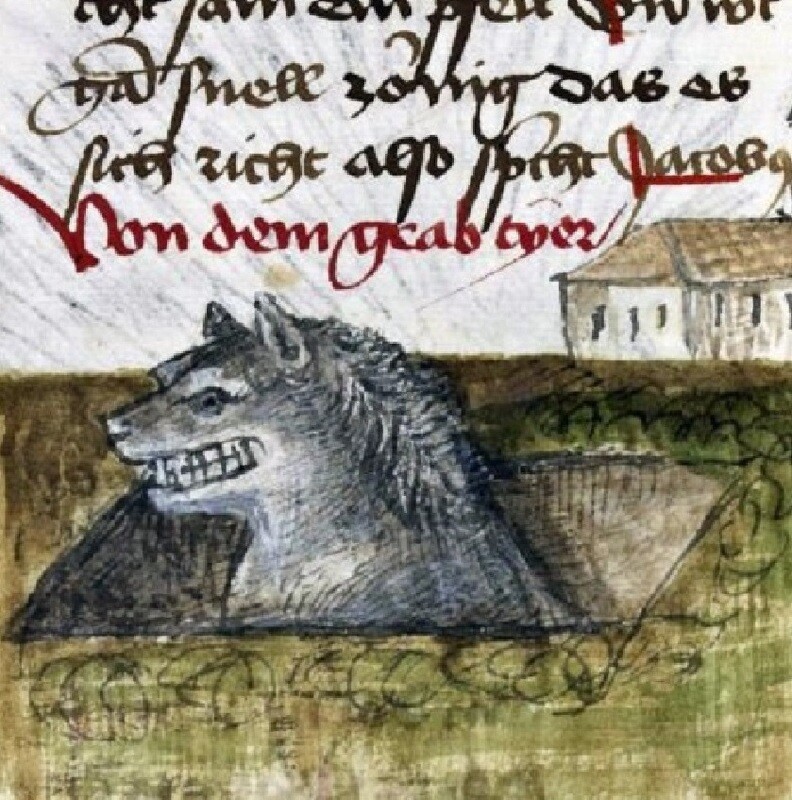 sam ein pfeil
gar snell zornig das es
sich richt also spricht Jacobus
Von dem grab tyer